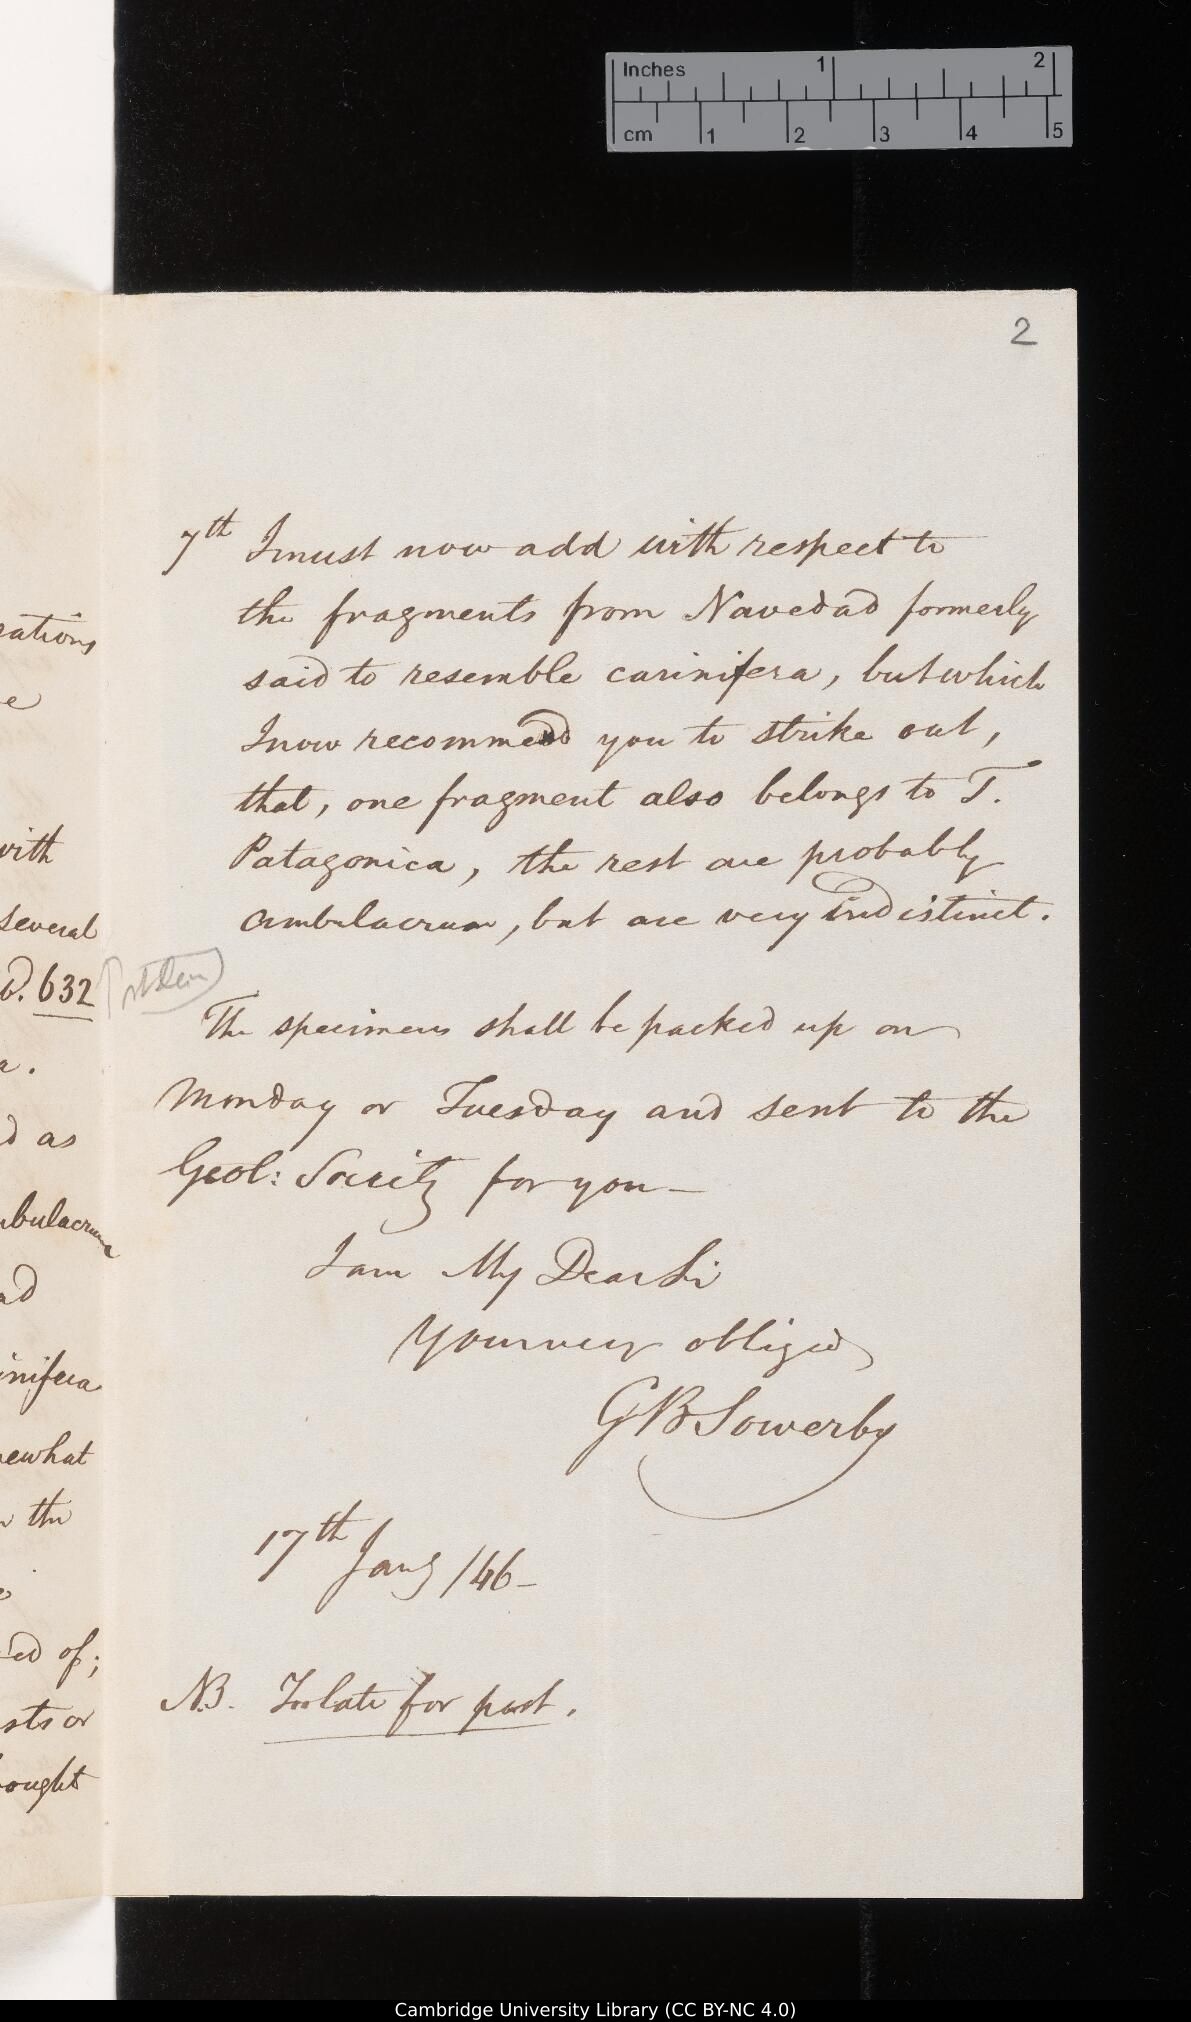 Inches 1 2
cm 1 2 3 4 5
2
7th I must now add with respect to
the fragments from Navedad formerly
said to resemble carinifera, but which
I now recommend you to strike out,
that, one fragment also belongs to T.
Patagonica, the rest are probably
ambulacrum, but are very indistinct.
The specimens shall be packed up on
Monday or Tuesday and sent to the
Geol: Society for you—
I am My Dear Sir
Your very obliged
G B Sowerby
17th Jany /46—
NB. Too late for post.
rations
e
with
several
632
a.
d as
mbulacrum
ad
inifera
mewhat
the
ed of;
sts or
ought
Cambridge University Library (CC BY-NC 4.0)